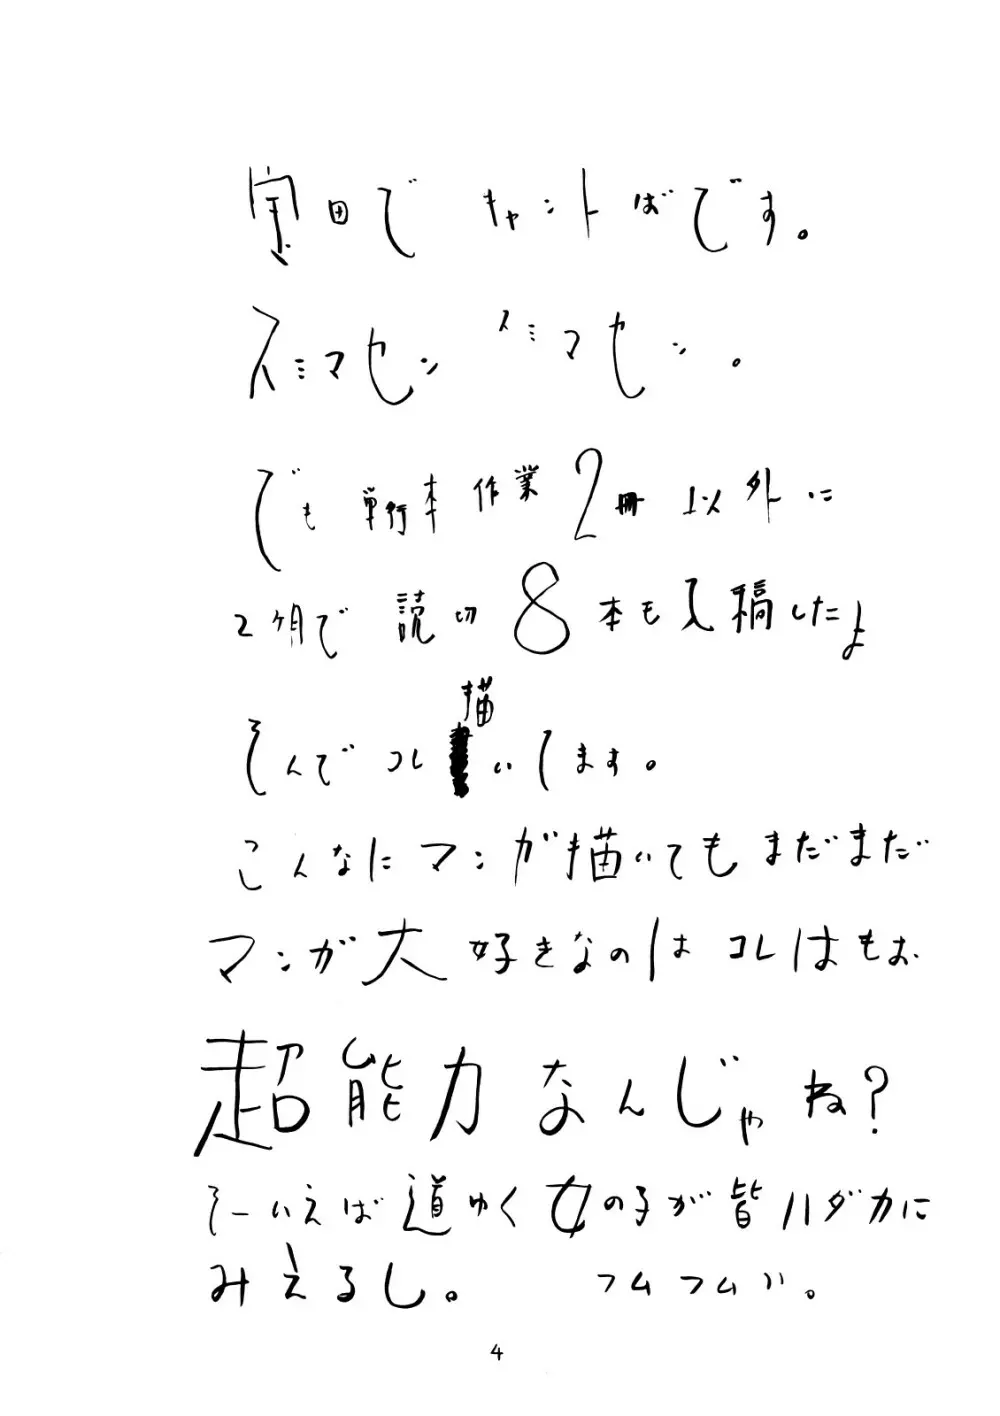 宝田で キャントばです。
スミマセン スミマセン。
でも 単行本 作業 2冊 以外に
2ヶ月で 読切 8本も入稿したよ
そんで コレ 描いてます。
こんなに マンガ描いても まだまだ
マンガ大好きなのは コレはもお
超能力なんじゃね?
そーいえば 道ゆく女の子が皆ハダカに
みえるし。 フムフム〃。
4